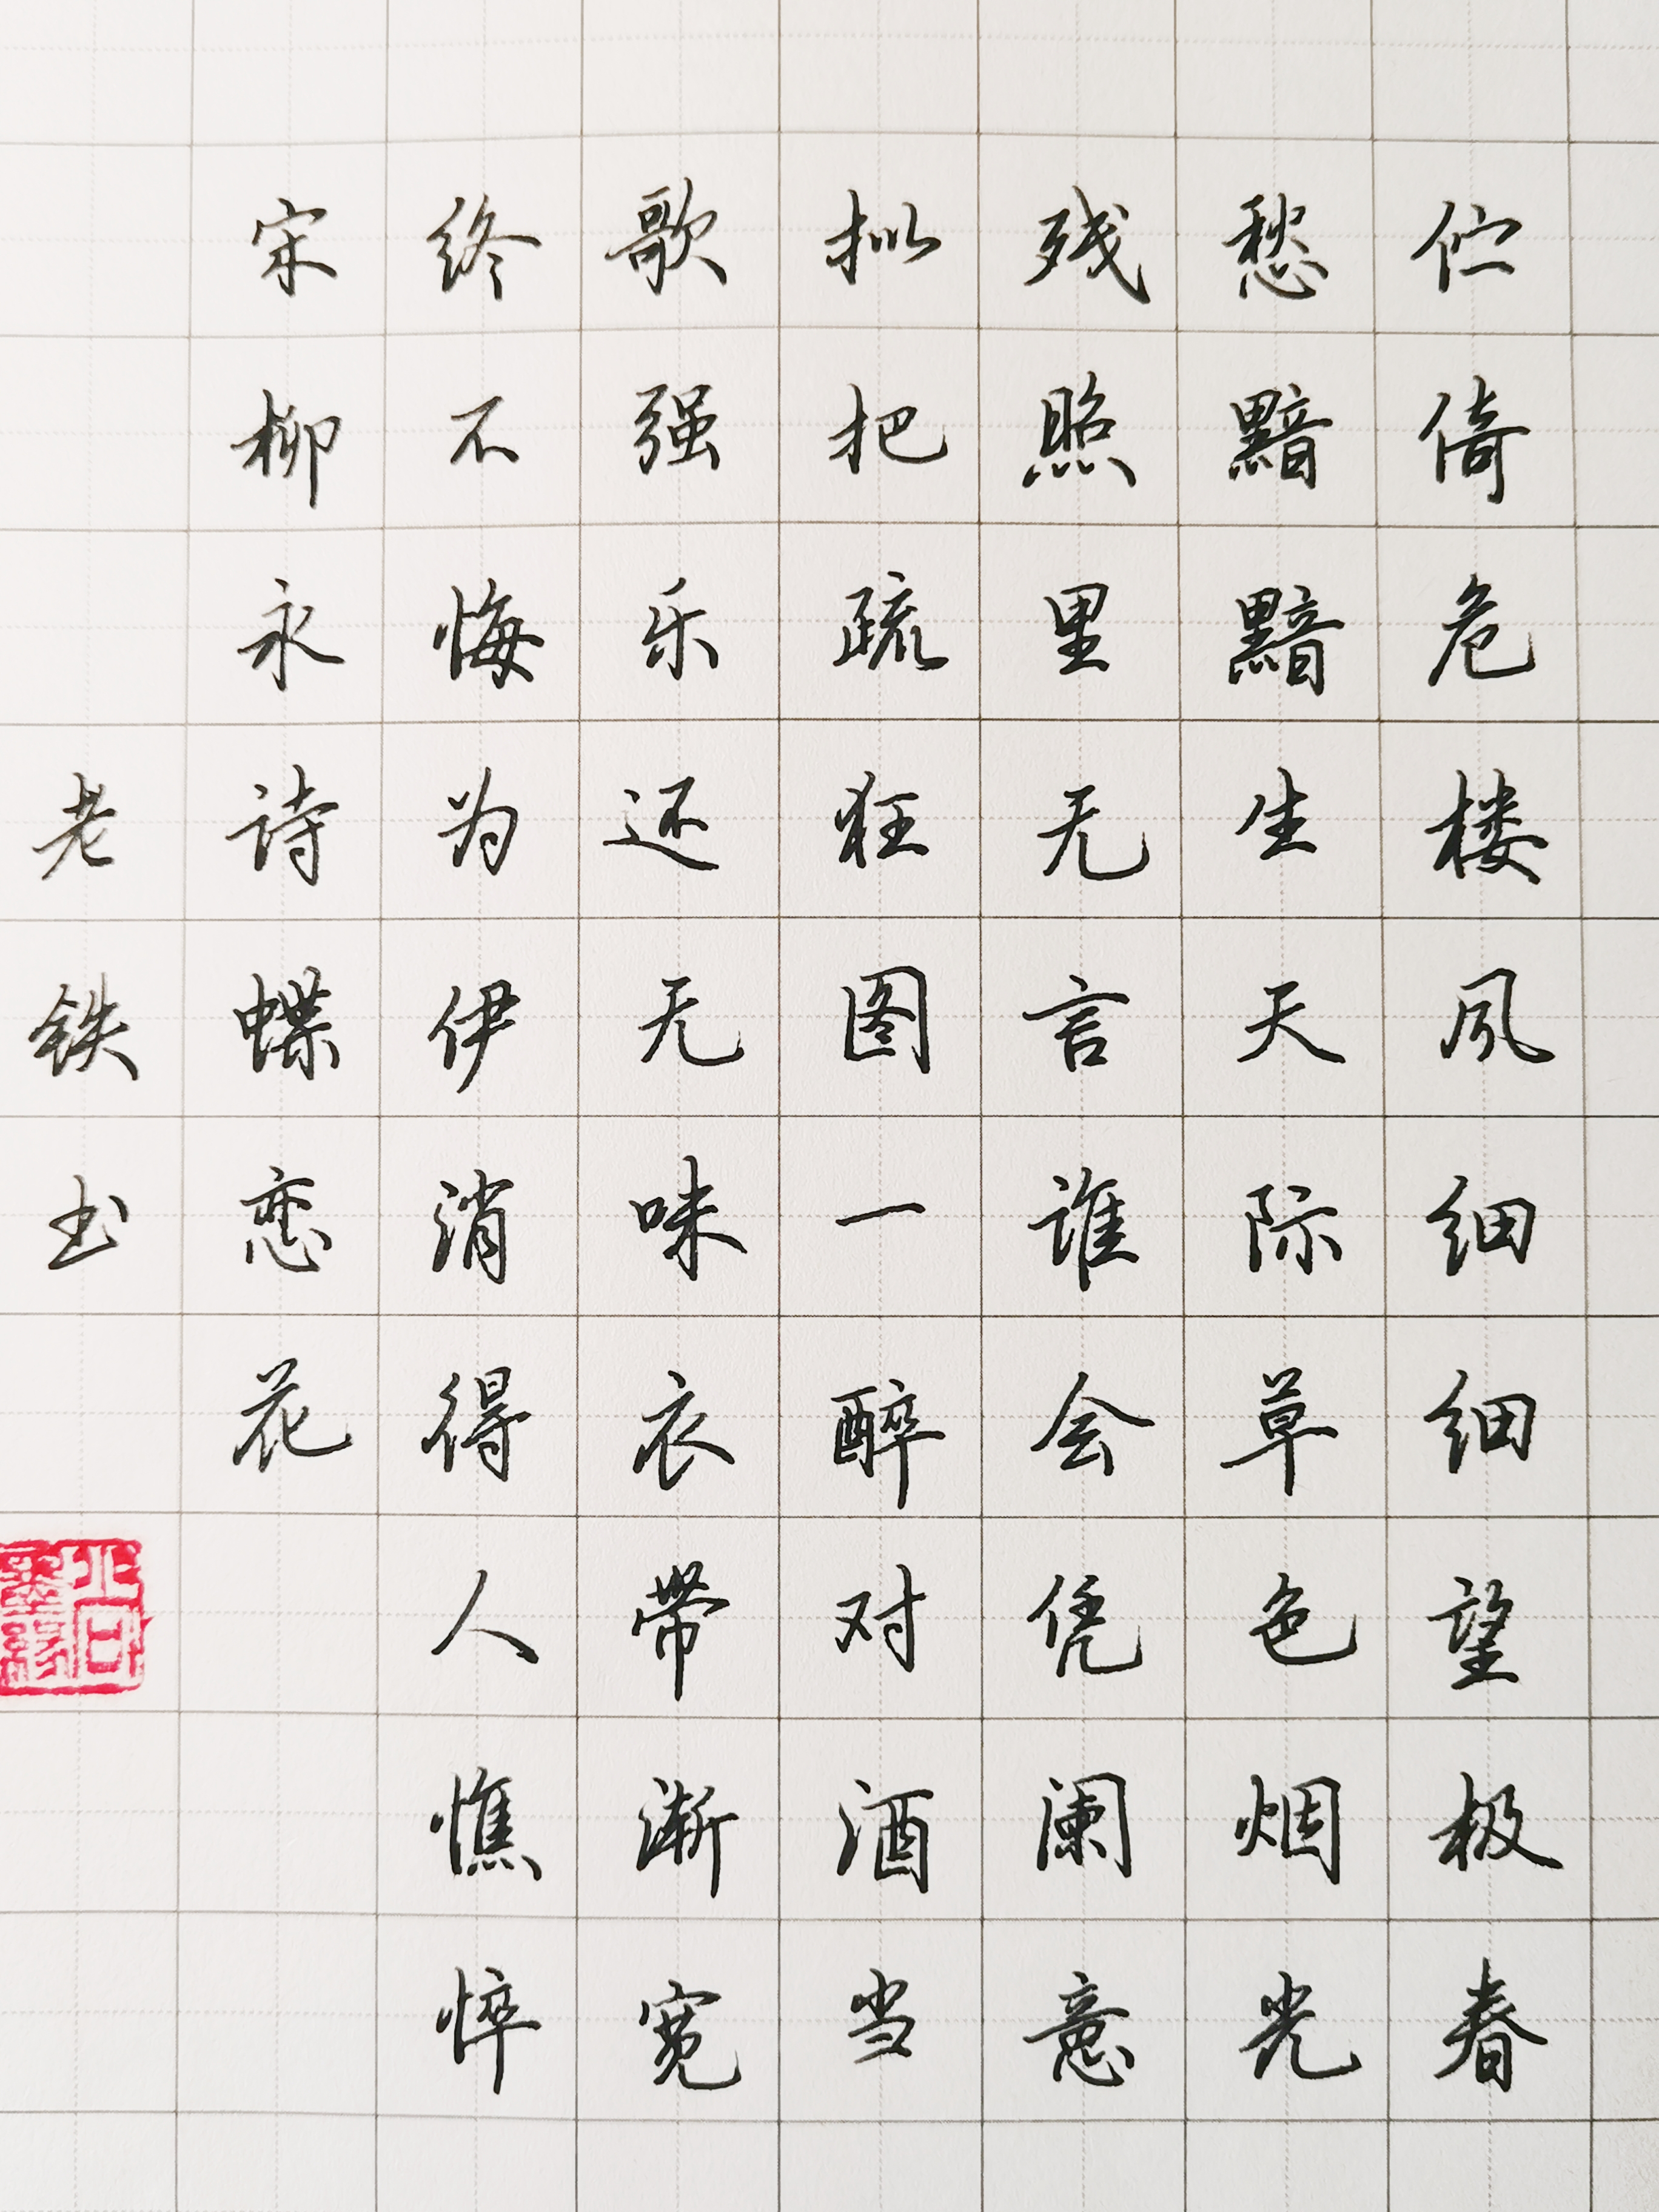 伫倚危楼风细细望极春
愁黯黯生天际草色烟光
残照里无言谁会凭阑意
拟把疏狂图一醉对酒当
歌强乐还无味衣带渐宽
终不悔为伊消得人憔悴
宋柳永诗蝶恋花
老铁书